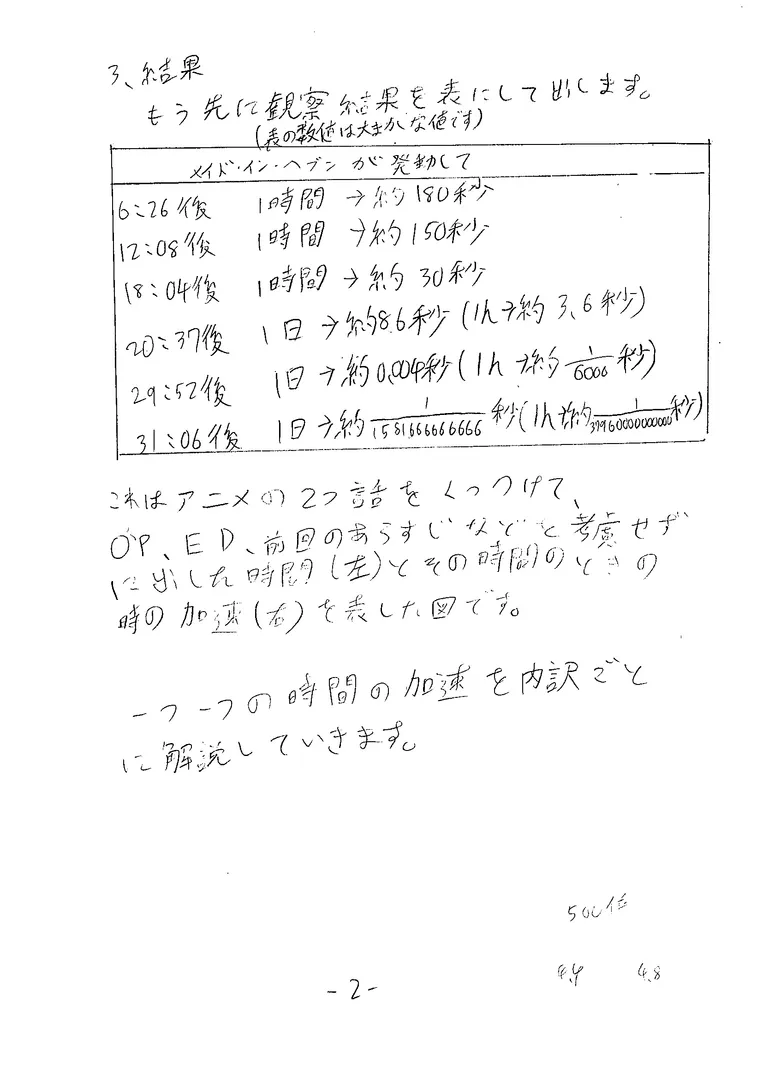 3、結果
もう先に観察結果を表にして出します。
(表の数値は大まかな値です)
メイド・イン・ヘブン が 発動して
6:26後 1時間 → 約180秒
12:08後 1時間 → 約150秒
18:04後 1時間 → 約30秒
20:37後 1日 → 約86秒 (1h→約3,6秒)
29:52後 1日 → 約0,004秒 (1h→約 1/6000 秒)
31:06後 1日 → 約 1/1581666666666 秒 (1h→約 1/37960000000000 秒)
これはアニメの2つ話をくっつけて、
OP、ED、前回のあらすじなどを考慮せず
に出した時間(左)とその時間のときの
時の加速(右)を表した図です。
一つ一つの時間の加速を内訳ごと
に解説していきます。
500位
4.4 4.8
-2-